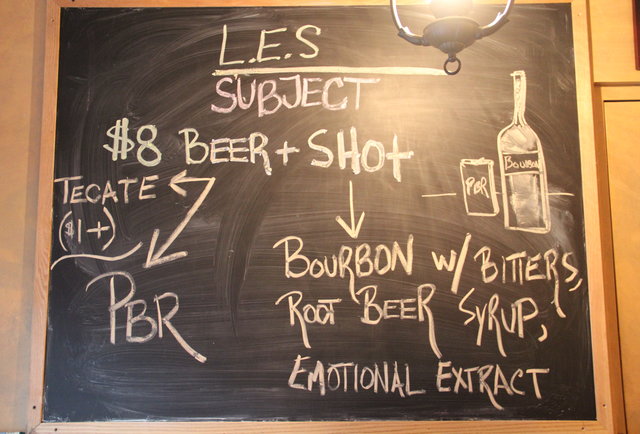 L.E.S
SUBJECT
$8 BEER + SHOT
TECATE
($1+)
PBR
BOURBON W/ BITTERS,
ROOT BEER SYRUP,
EMOTIONAL EXTRACT
PBR
BOURBON